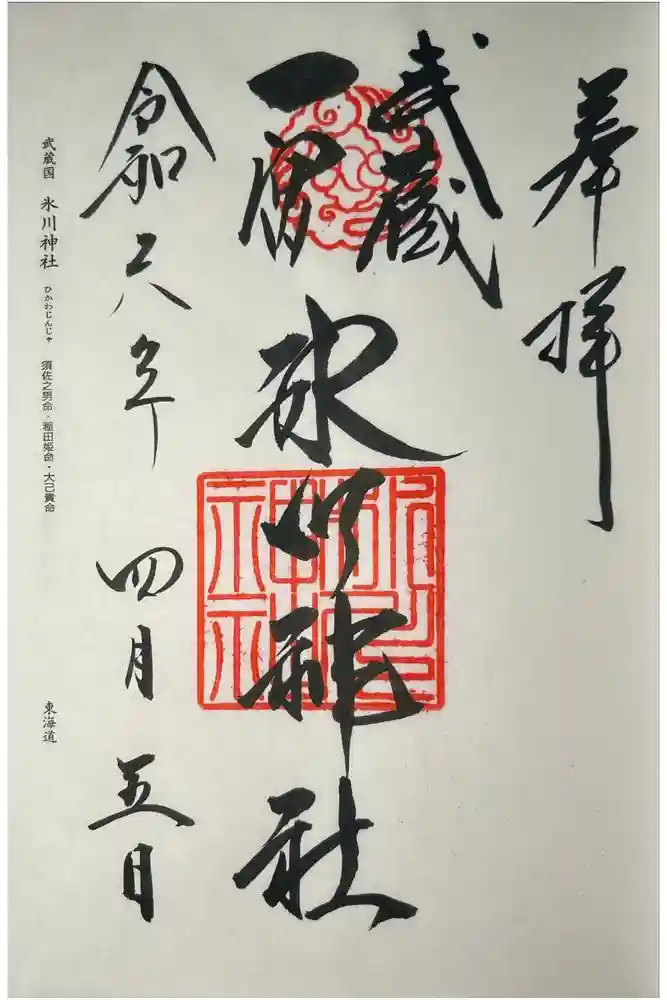 奉拝
武蔵
一宮
氷川神社
令和六年 四月 五日
武蔵国 氷川神社 ひかわじんじゃ 須佐之男命・稲田姫命・大己貴命 東海道